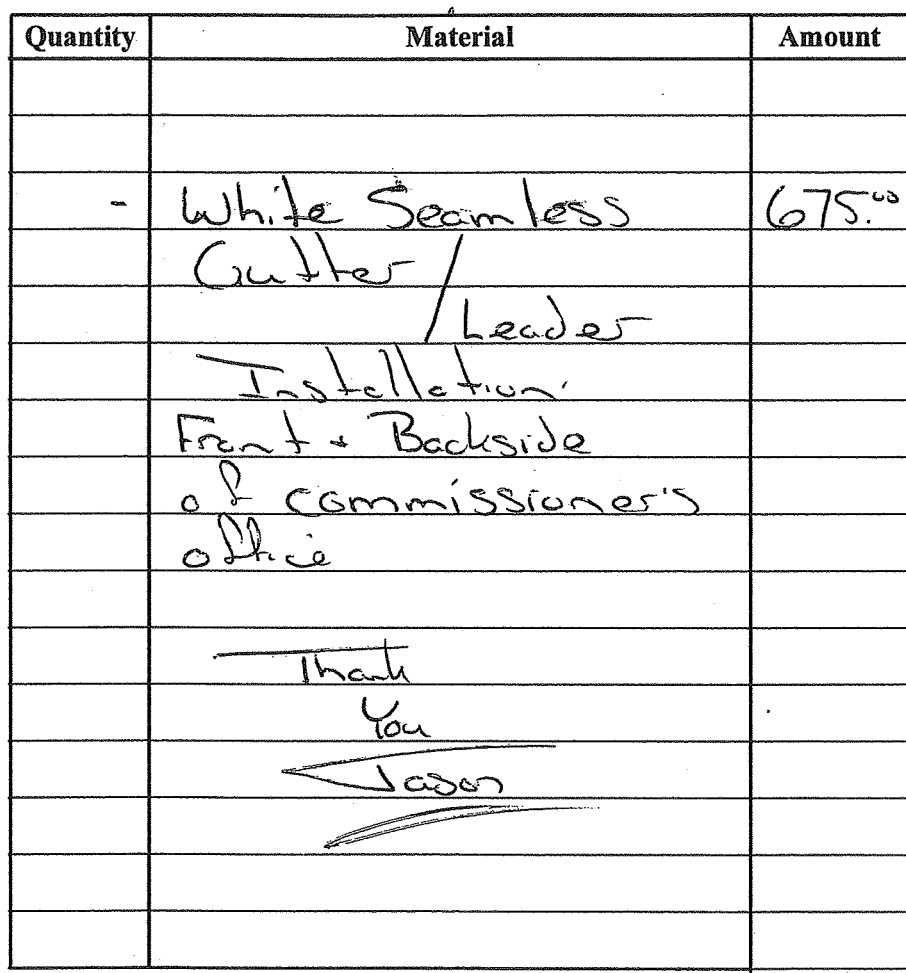 Quantity Material Amount
- White Seamless 675.00
Gutter /
Leader
Installation.
Front + Backside
of commissioner's
office
Thank
You
Jason